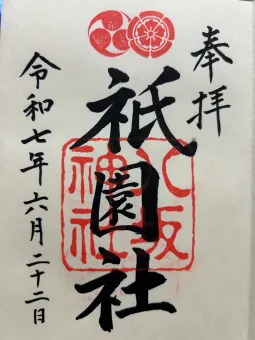 奉拝
祇園社
八坂
神社
令和七年六月二十二日